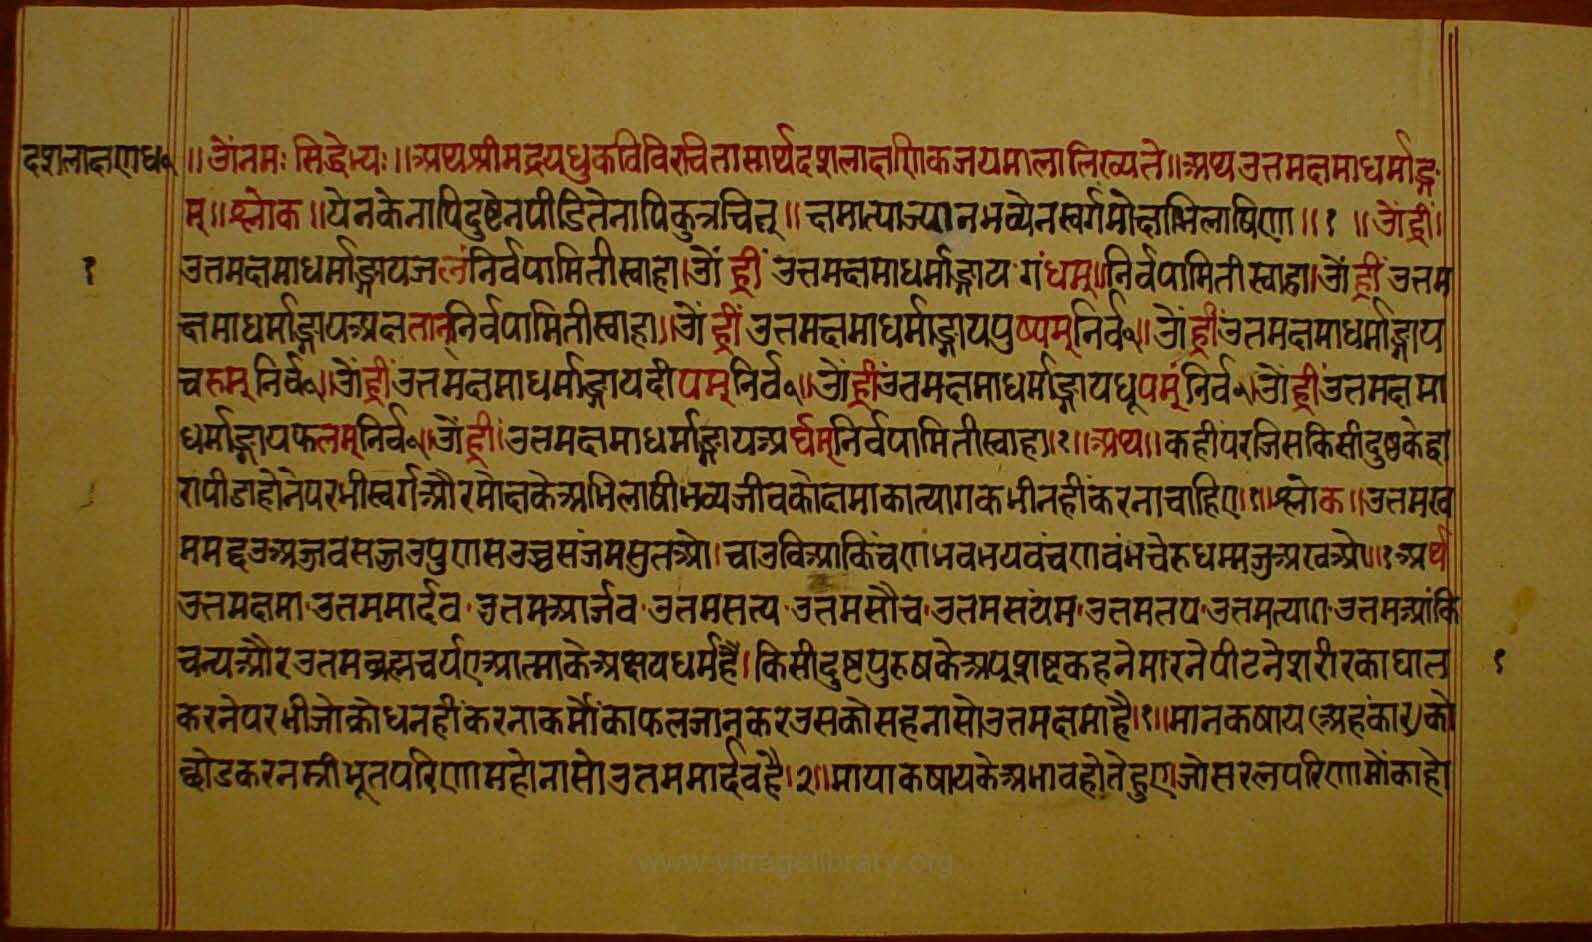 दशलाक्षणध॰
॥ॐनमः सिद्धेभ्यः॥अथश्रीमद्रयधुकविविरचितासार्थदशलाक्षणिकजयमालालिख्यते॥अथउत्तमक्षमाधर्माङ्ग
म्॥श्लोक॥येनकेनापिदुष्टेनपीडितेनापिकुत्रचित्॥क्षमात्याज्यानभव्येनस्वर्गमोक्षाभिलाषिणा॥१॥ॐह्रीं।
१
उत्तमक्षमाधर्माङ्गायजलंनिर्वपामितीस्वाहा।ॐह्रीं उत्तमक्षमाधर्माङ्गाय गंधम्॥निर्वपामितीस्वाहा।ॐह्रींउत्तम
क्षमाधर्माङ्गायअक्षतान्निर्वपामितीस्वाहा।ॐ ह्रींउत्तमक्षमाधर्माङ्गायपुष्पम्निर्व॰॥ॐह्रींउत्तमक्षमाधर्माङ्गाय
चरुम्निर्व॰।ॐह्रींउत्तमक्षमाधर्माङ्गायदीपम्निर्व॰॥ॐह्रींउत्तमक्षमाधर्माङ्गायधूपम्निर्व॰।ॐह्रींउत्तमक्षमा
धर्माङ्गायफलम्निर्व॰।ॐह्रीं।उत्तमक्षमाधर्माङ्गायअर्घम्निर्वपामितीस्वाहा।१॥अथ॥कहींपरजिसकिसीदुष्टकेद्वा
रापीडाहोनेपरभीस्वर्गऔरमोक्षकेअभिलाषीभव्यजीवकोक्षमाकात्यागकभीनहींकरनाचाहिए।१॥श्लोक॥उत्तमख
ममद्दउअज्जवसज्जउपुणसउच्चसंजमसुतओ।चाउविआकिंचणभवभयवंचणवंभचेरुधम्मजुअखओ॥१अर्थ
उत्तमक्षमा·उत्तममार्दव·उत्तमआर्जव·उत्तमसत्य·उत्तमसौच·उत्तमसंयम·उत्तमतप·उत्तमत्याग·उत्तमआंकि
चन्यऔरउत्तमब्रह्मचर्यएआत्माकेअक्षयधर्महैं।किसीदुष्टपुरुषकेअपशब्दकहनेमारनेपीटनेशरीरकाघात
१
करनेपरभीजोक्रोधनहींकरनाकर्मोंकाफलजानकरउसकोसहनासोउत्तमक्षमाहै।१॥मानकषाय(अहंकार)को
छोडकरनम्रीभूतपरिणामहोनासोउत्तममार्दवहै।२॥मायाकषायकेअभावहोतेहुए।जोसरलपरिणामोंकाहो
www.vitragelibrary.org